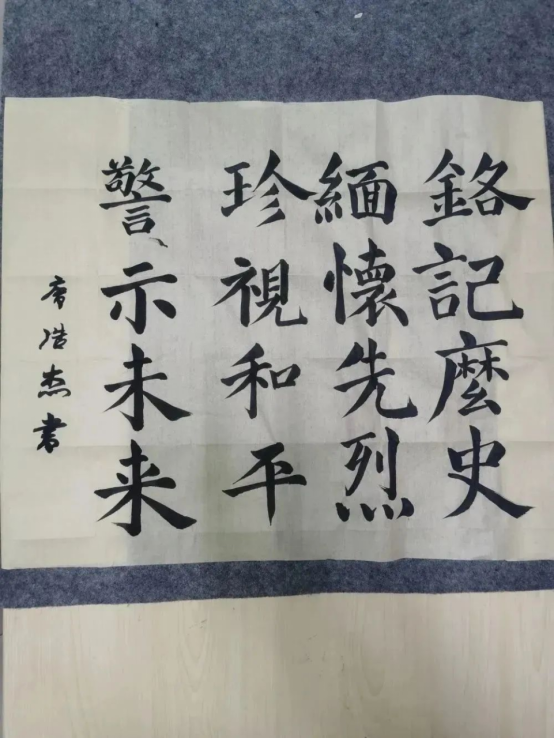 鉻記麼史
緬懷先烈
珍視和平
警示未来
浩杰書